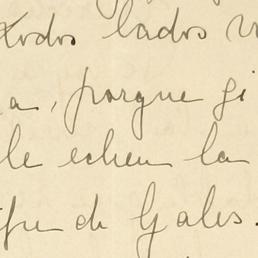 todos lados v
a, porque gi
le echen la
ifre de Gales.